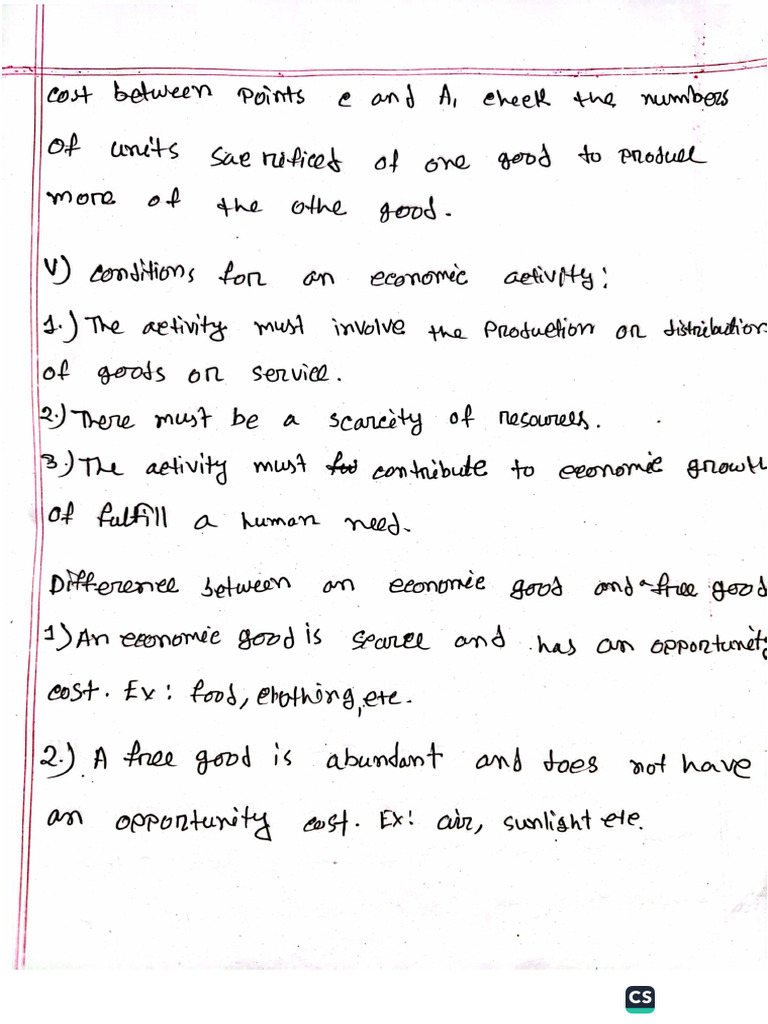 cost between points c and A, check the numbers
of units sacrificed of one good to produce
more of the othe good.
V) conditions for an economic activity:
1.) The activity must involve the production or distribution
of goods or service.
2.) There must be a scarcity of resources.
3.) The activity must contribute to economic growth
of fulfill a human need.
Difference between an economic good and a free good
1) An economic good is scarce and has an opportunity
cost. Ex: food, clothing, etc.
2.) A free good is abundant and does not have
an opportunity cost. Ex: air, sunlight etc.
CS